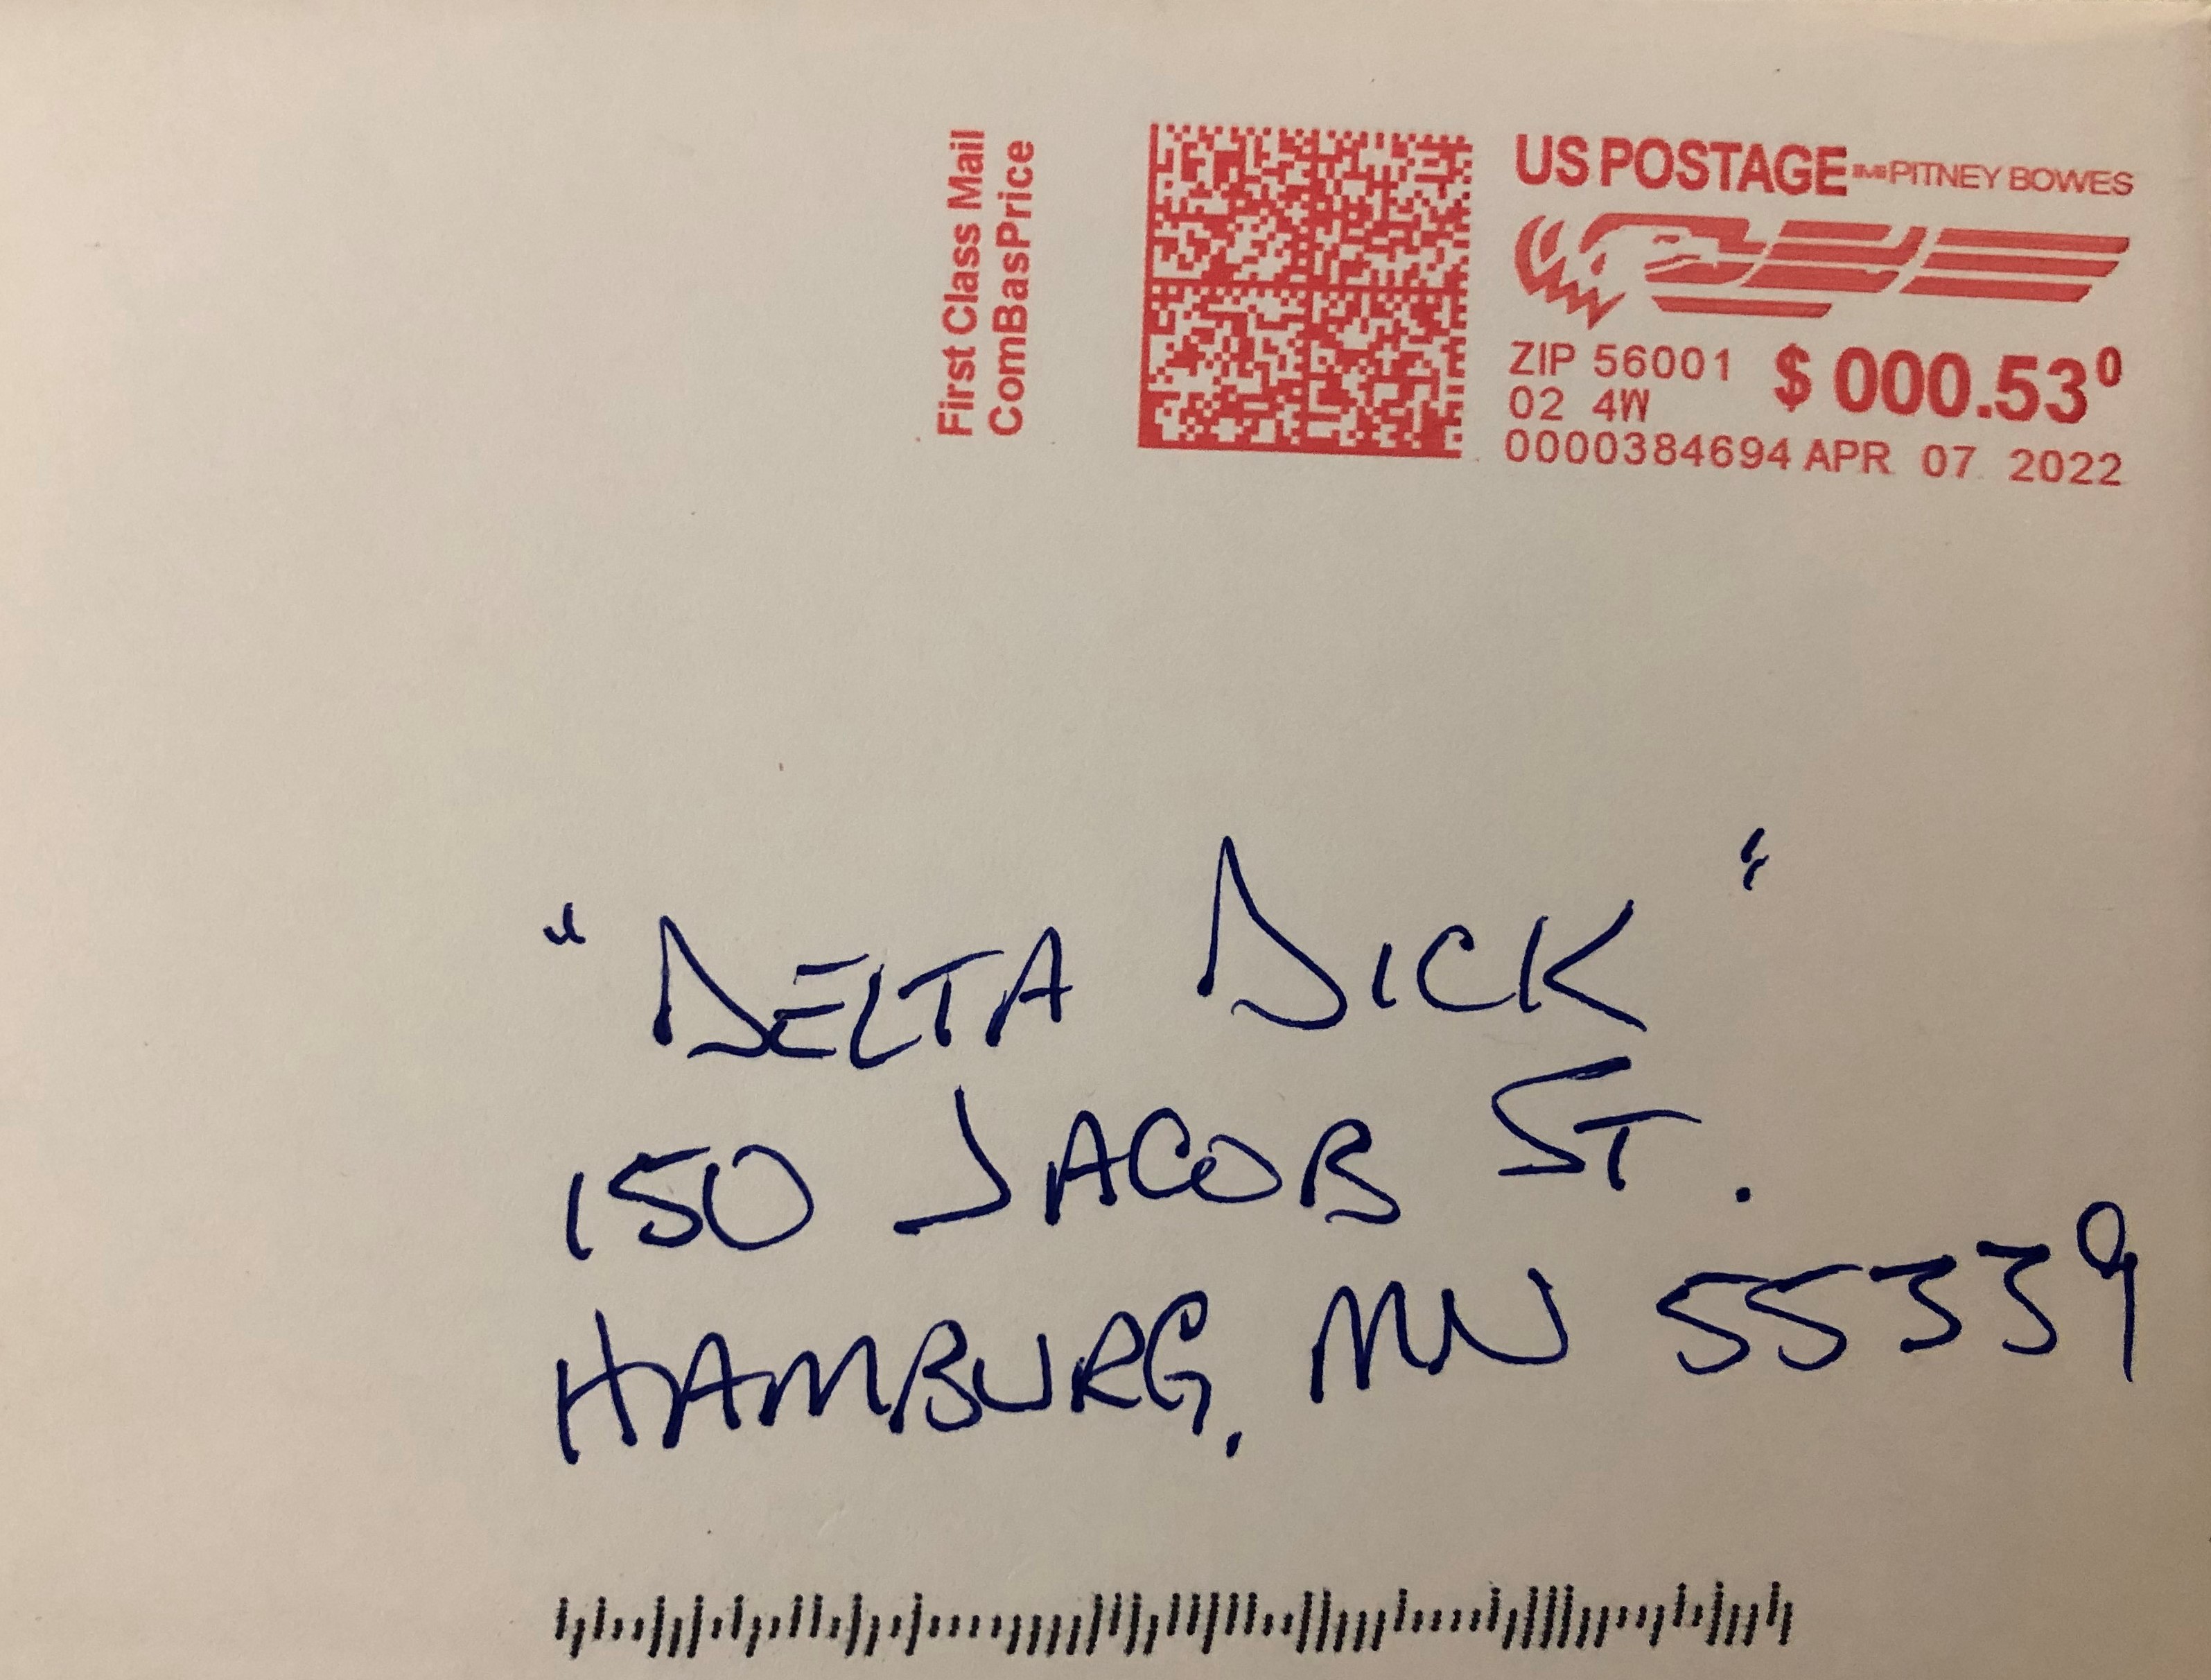 First Class Mail
ComBasPrice
US POSTAGE IMI PITNEY BOWES
ZIP 56001 $ 000.53⁰
02 4W
0000384694 APR 07 2022
"DELTA DICK"
150 JACOB ST.
HAMBURG, MN 55339